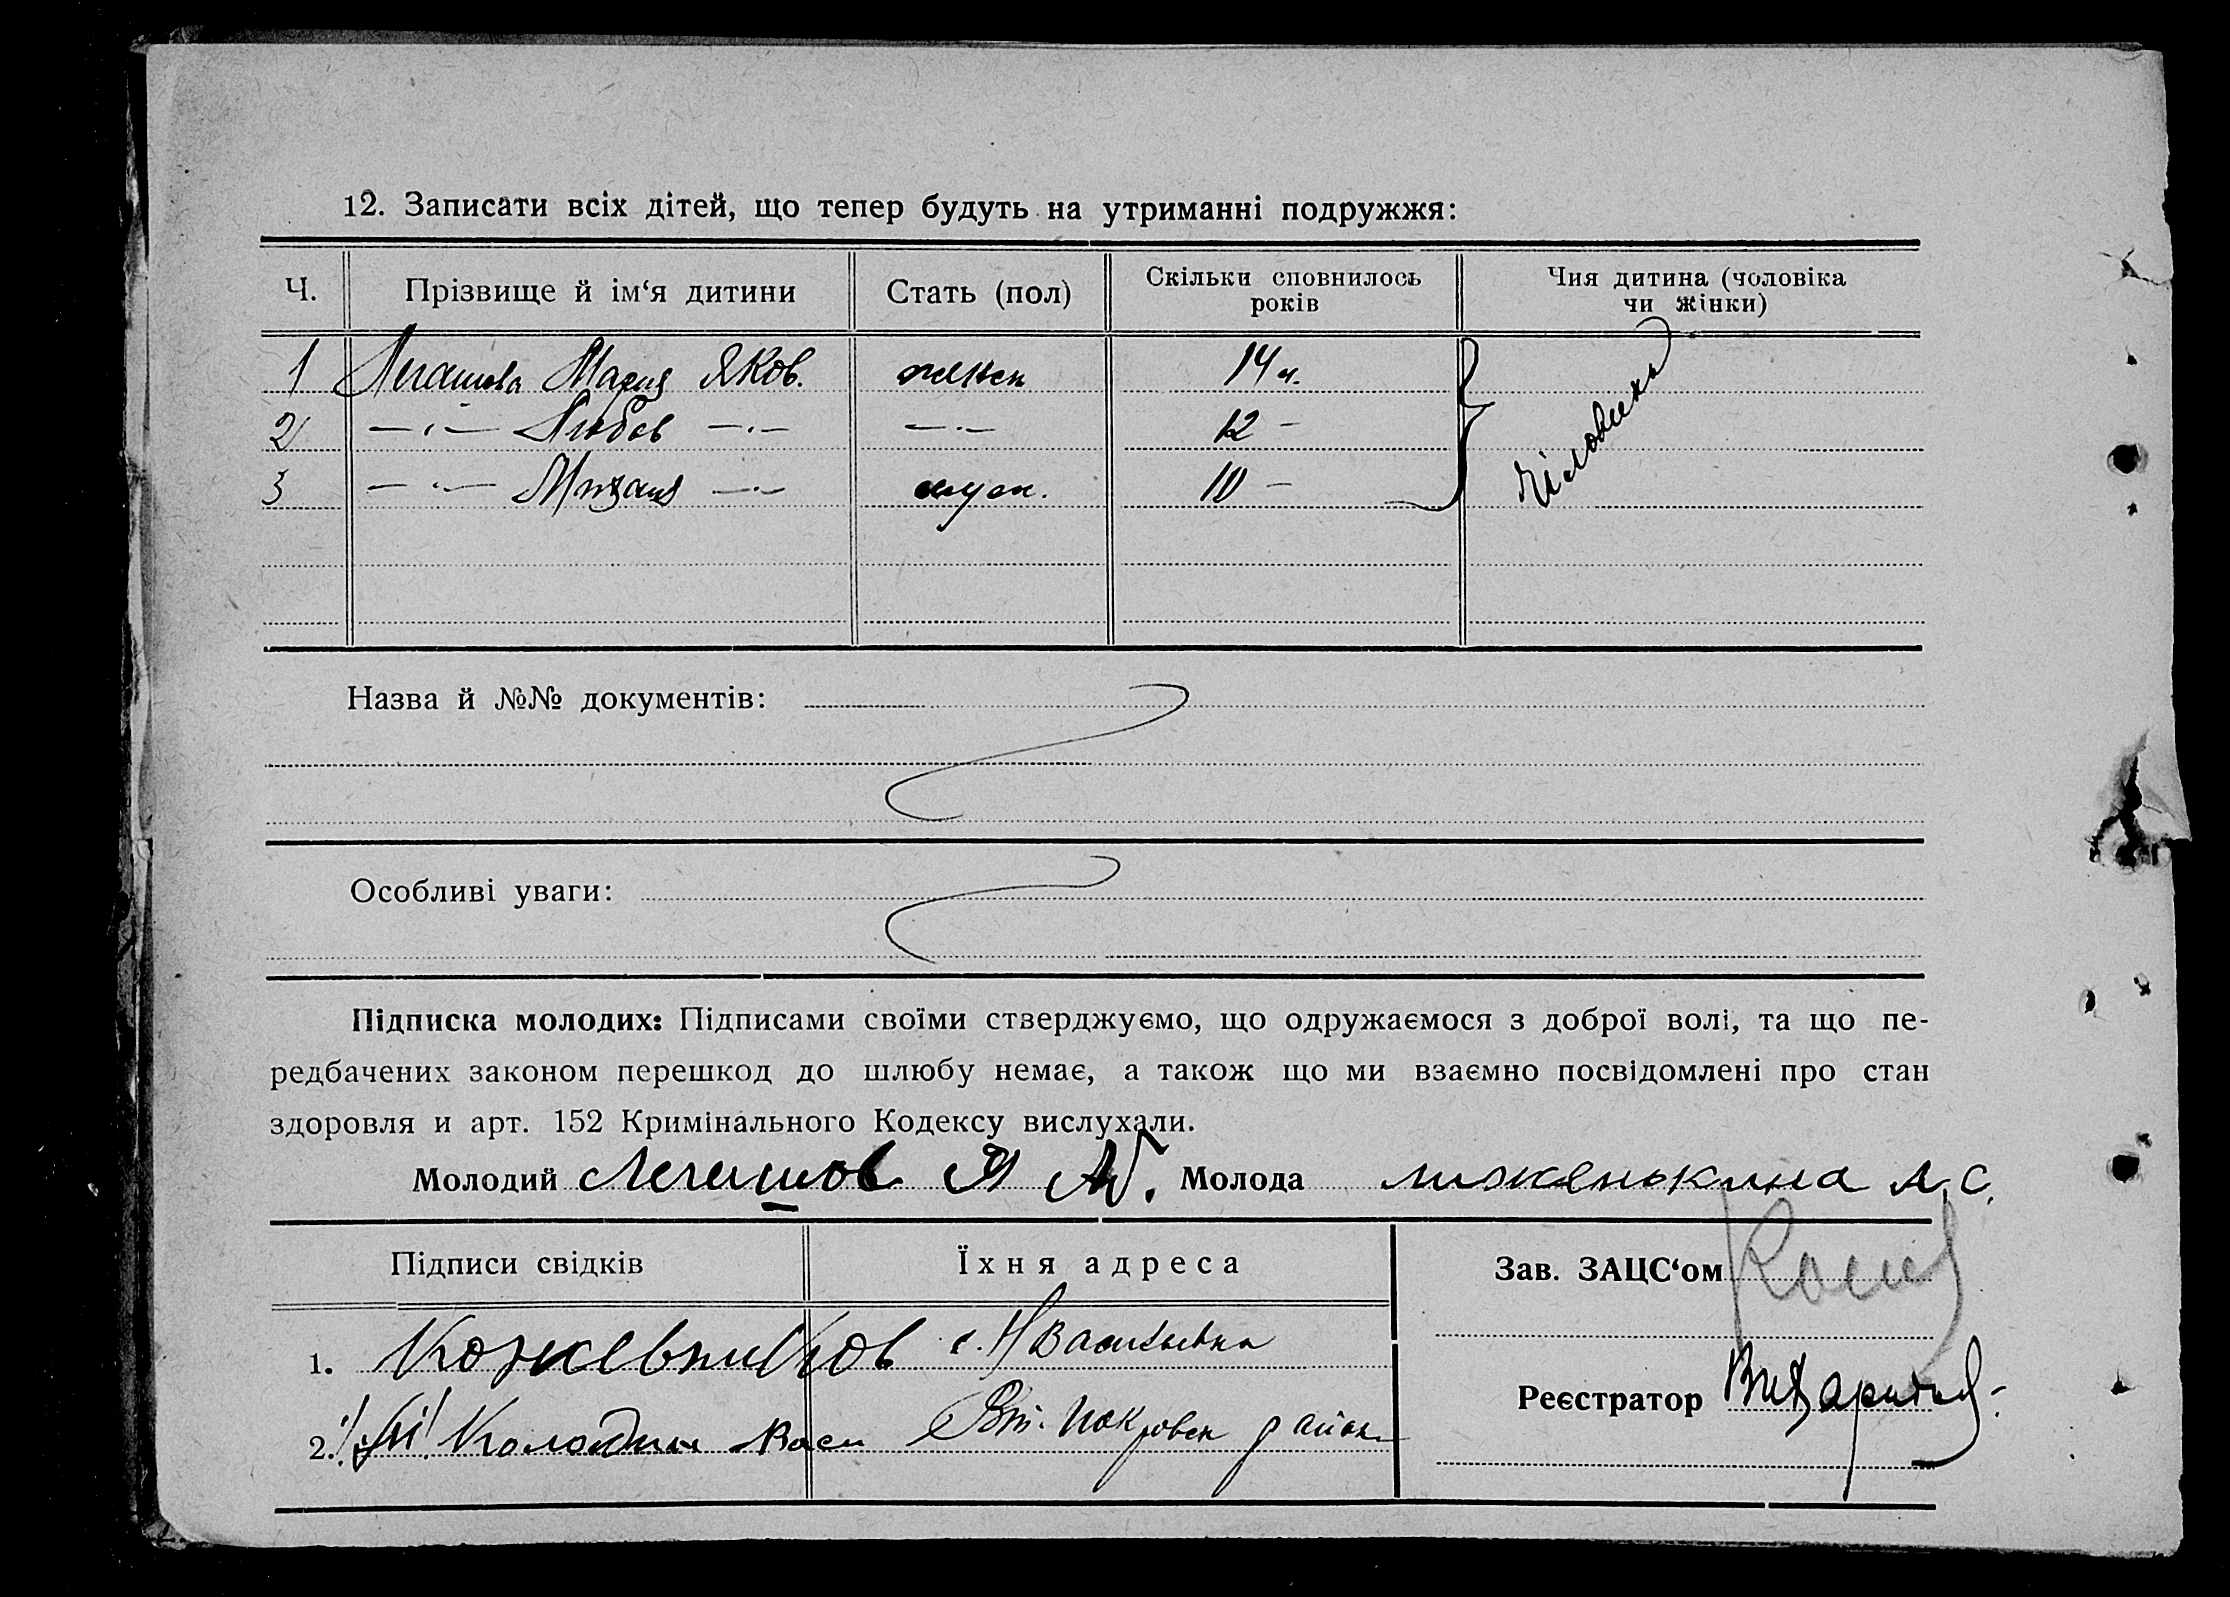 12. Записати всіх дітей, що тепер будуть на утриманні подружжя:
Ч. Прізвище й ім‘я дитини Стать (пол) Скільки сповнилось років Чия дитина (чоловіка чи жінки)
1 Легашова Мария Яков. женск 14 л.
2 —·— Любов —·— —·— 12 —
3 —·— —·— муж. 10 —
чоловіка
Назва й №№ документів:
Особливі уваги:
Підписка молодих: Підписами своїми стверджуємо, що одружаємося з доброї волі, та що пе-
редбачених законом перешкод до шлюбу немає, а також що ми взаємно посвідомлені про стан
здоровля и арт. 152 Кримінального Кодексу вислухали.
Молодий Легашов Я Молода лиженькина А.С.
Підписи свідків Їхня адреса Зав. ЗАЦС‘ом
1. Кожевников с. Н Васильевка
Реєстратор
2. Колодин Васи Вт. Покровск район